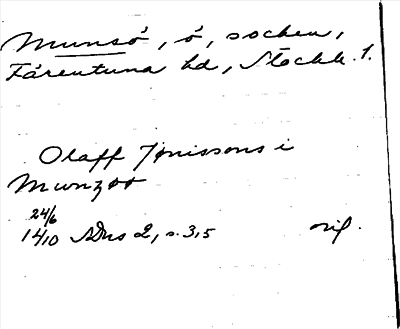 Munsö, ö, socken,
Färentuna hd, Stockh. l.
Olaff Jønissons i
Munzøø
24/6
1410 SDns 2, s. 315
orig.